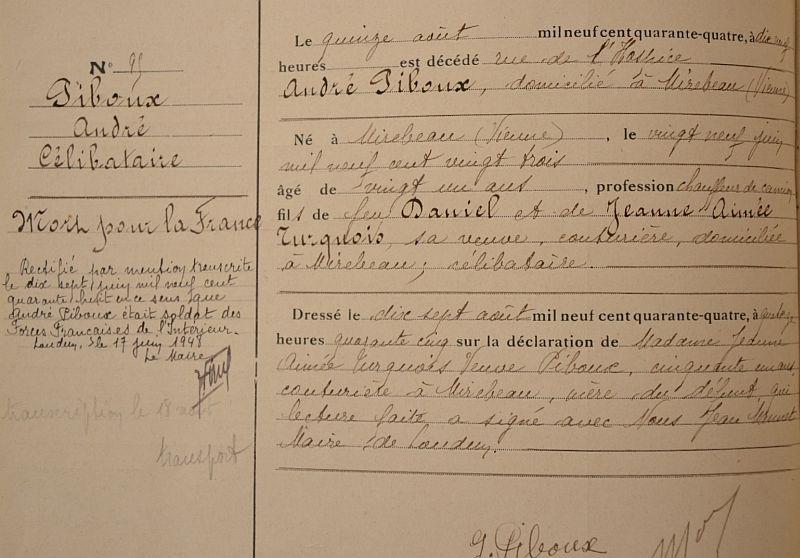 N° 95
Piboux
André
Célibataire
Mort pour la France
Rectifié par mention transcrite
le dix sept juin mil neuf cent
quarante huit en ce sens que
André Piboux était soldat des
Forces Françaises de l'Intérieur.
Loudun, le 17 juin 1948
Le Maire
transcription le 18 août
transport
Le quinze août mil neuf cent quarante-quatre, à dix neuf
heures est décédé rue de l'Hospice
André Piboux, domicilié à Mirebeau (Vienne)
Né à Mirebeau (Vienne), le vingt neuf juin
mil neuf cent vingt trois
âgé de vingt un ans, profession chauffeur de camion
fils de feu Daniel et de Jeanne Aimée
Turquois, sa veuve, couturière, domiciliée
à Mirebeau; célibataire.
Dressé le dix sept août mil neuf cent quarante-quatre, à quatorze
heures quarante cinq sur la déclaration de Madame Jeanne
Aimée Turquois Veuve Piboux, cinquante un ans,
couturière à Mirebeau, mère du défunt qui
lecture faite a signé avec Nous Jean
Maire de Loudun.
J. Piboux